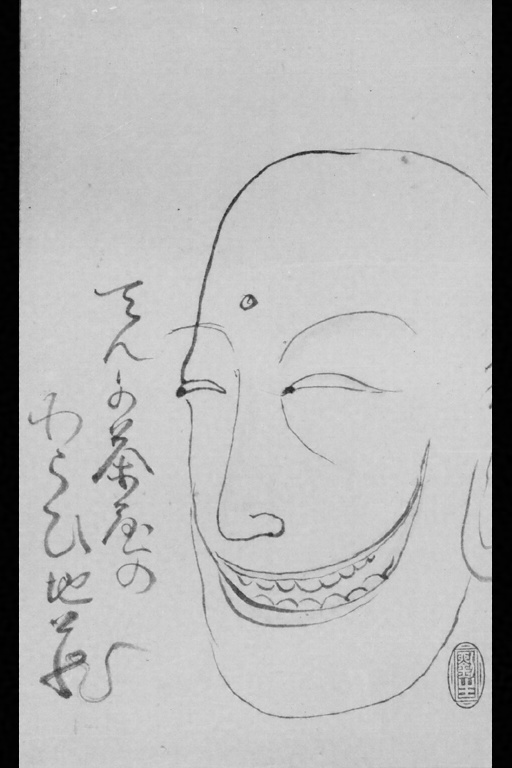 てんか茶屋の
わらひ地蔵